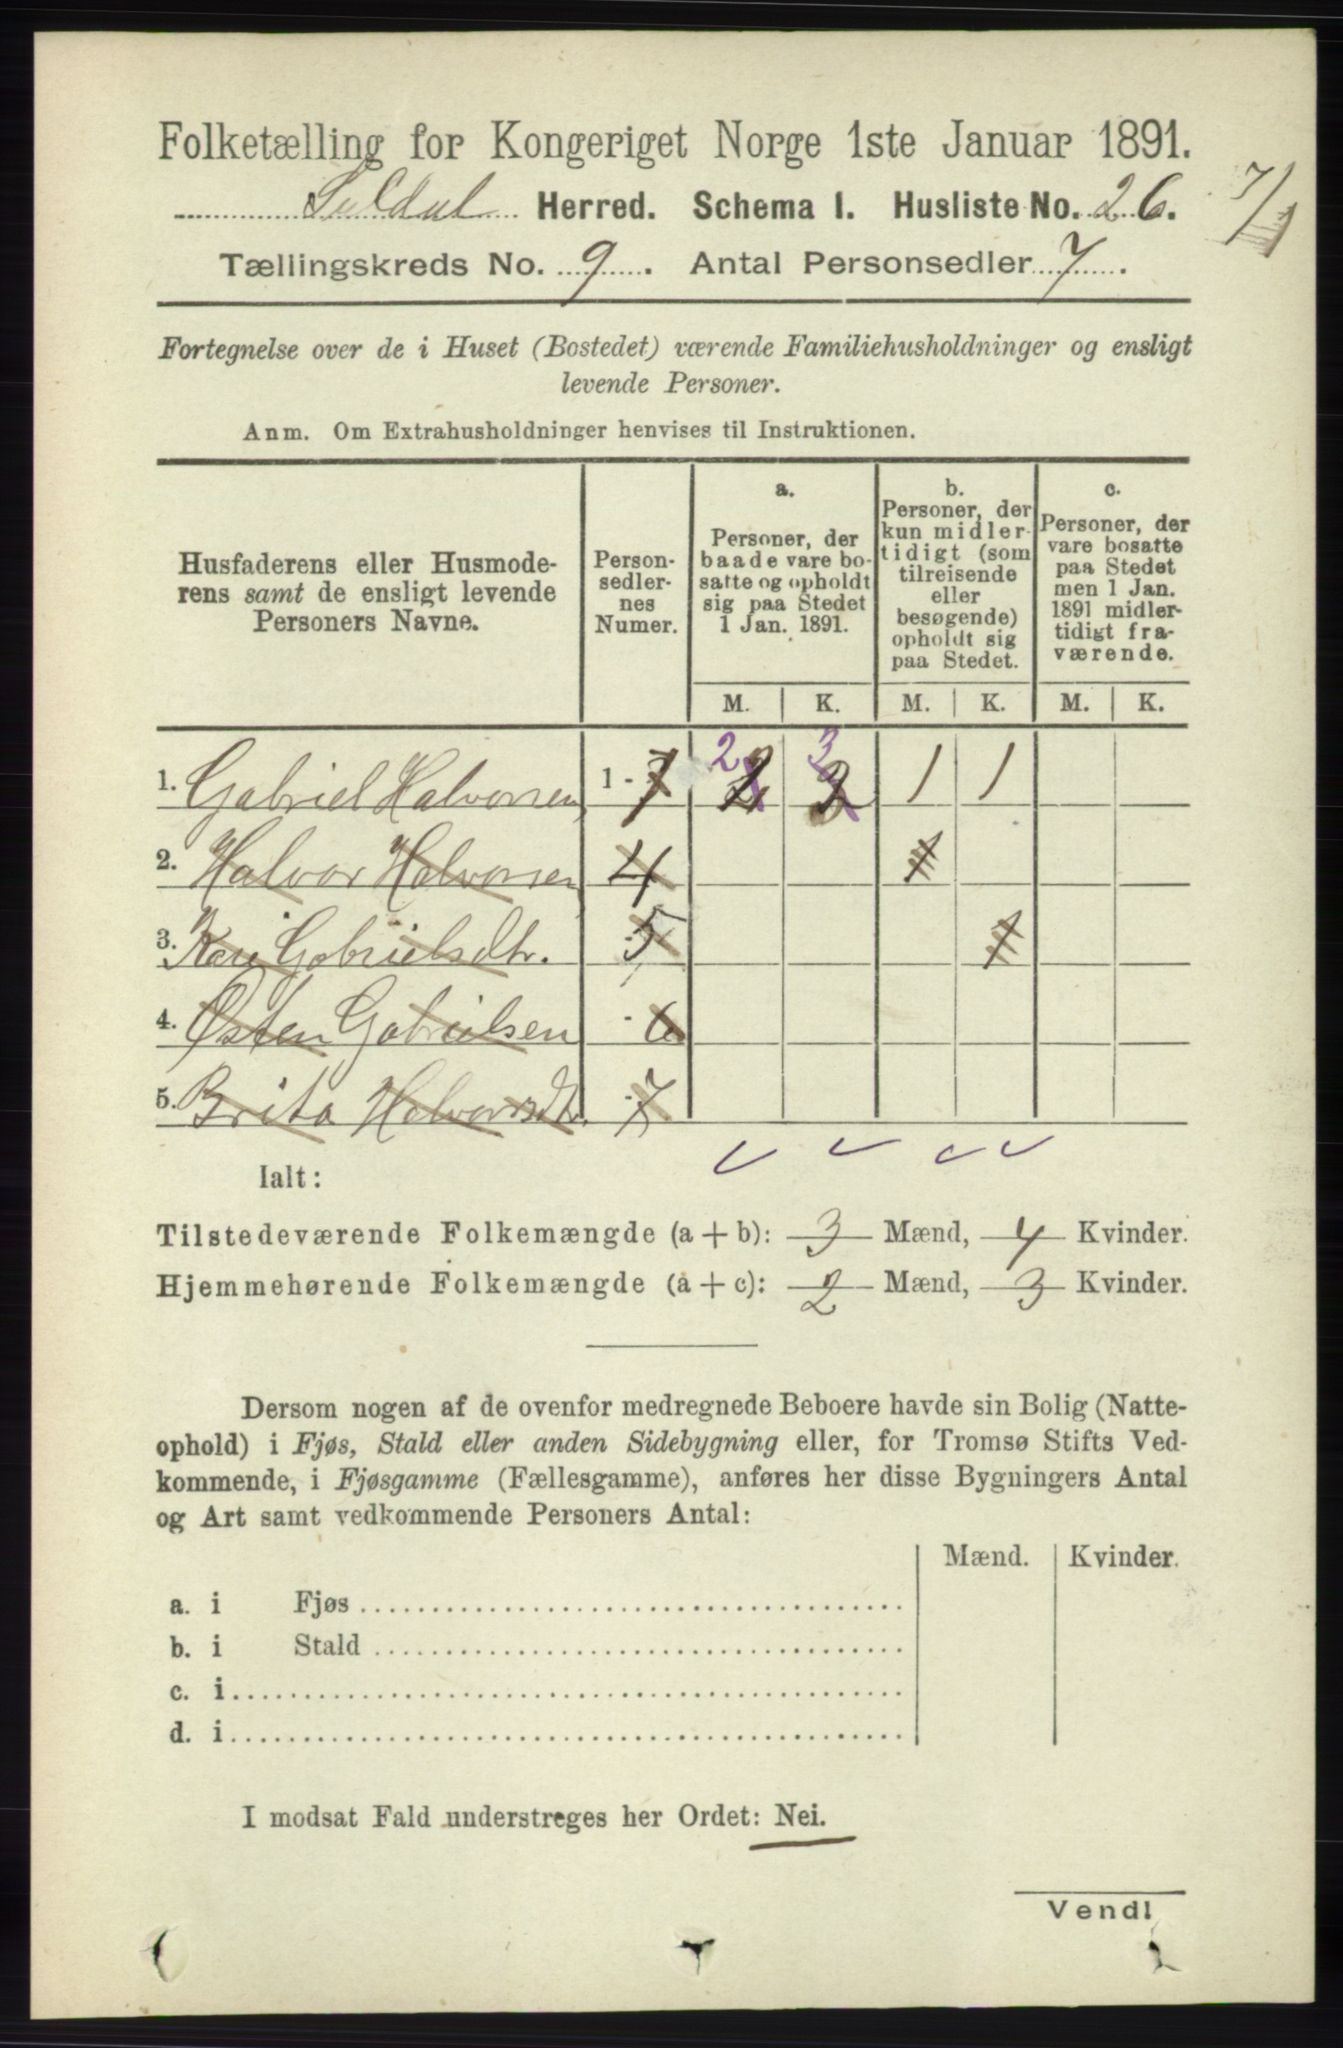 Folketælling for Kongeriget Norge 1ste Januar 1891.
Suldal Herred. Schema I. Husliste No. 26.
7/1
Tællingskreds No. 9. Antal Personsedler 7.
Fortegnelse over de i Huset (Bostedet) værende Familiehusholdninger og ensligt
levende Personer.
Anm. Om Extrahusholdninger henvises til Instruktionen.
Husfaderens eller Husmode-
rens samt de ensligt levende
Personers Navne.
Person-
sedler-
nes
Numer.
a.
Personer, der
baade vare bo-
satte og opholdt
sig paa Stedet
1 Jan. 1891.
b.
Personer, der
kun midler-
tidigt (som
tilreisende
eller
besøgende)
opholdt sig
paa Stedet.
c.
Personer, der
vare bosatte
paa Stedet
men 1 Jan.
1891 midler-
tidigt fra-
værende.
M. K. M. K. M. K.
2 3
1. Gabriel Halvorsen 1 - 7 2 2 1 1
2. Halvor Halvorsen 4 1
3. Kari Gabrielsdtr. - 5 1
4. Østen Gabrielsen - 6
5. Brita Halvorsdtr. - 7
Ialt:
Tilstedeværende Folkemængde (a + b): 3 Mænd, 4 Kvinder.
Hjemmehørende Folkemængde (a + c): 2 Mænd, 3 Kvinder.
Dersom nogen af de ovenfor medregnede Beboere havde sin Bolig (Natte-
ophold) i Fjøs, Stald eller anden Sidebygning eller, for Tromsø Stifts Ved-
kommende, i Fjøsgamme (Fællesgamme), anføres her disse Bygningers Antal
og Art samt vedkommende Personers Antal:
Mænd. Kvinder.
a. i Fjøs
b. i Stald
c. i
d. i
I modsat Fald understreges her Ordet: Nei.
Vend!